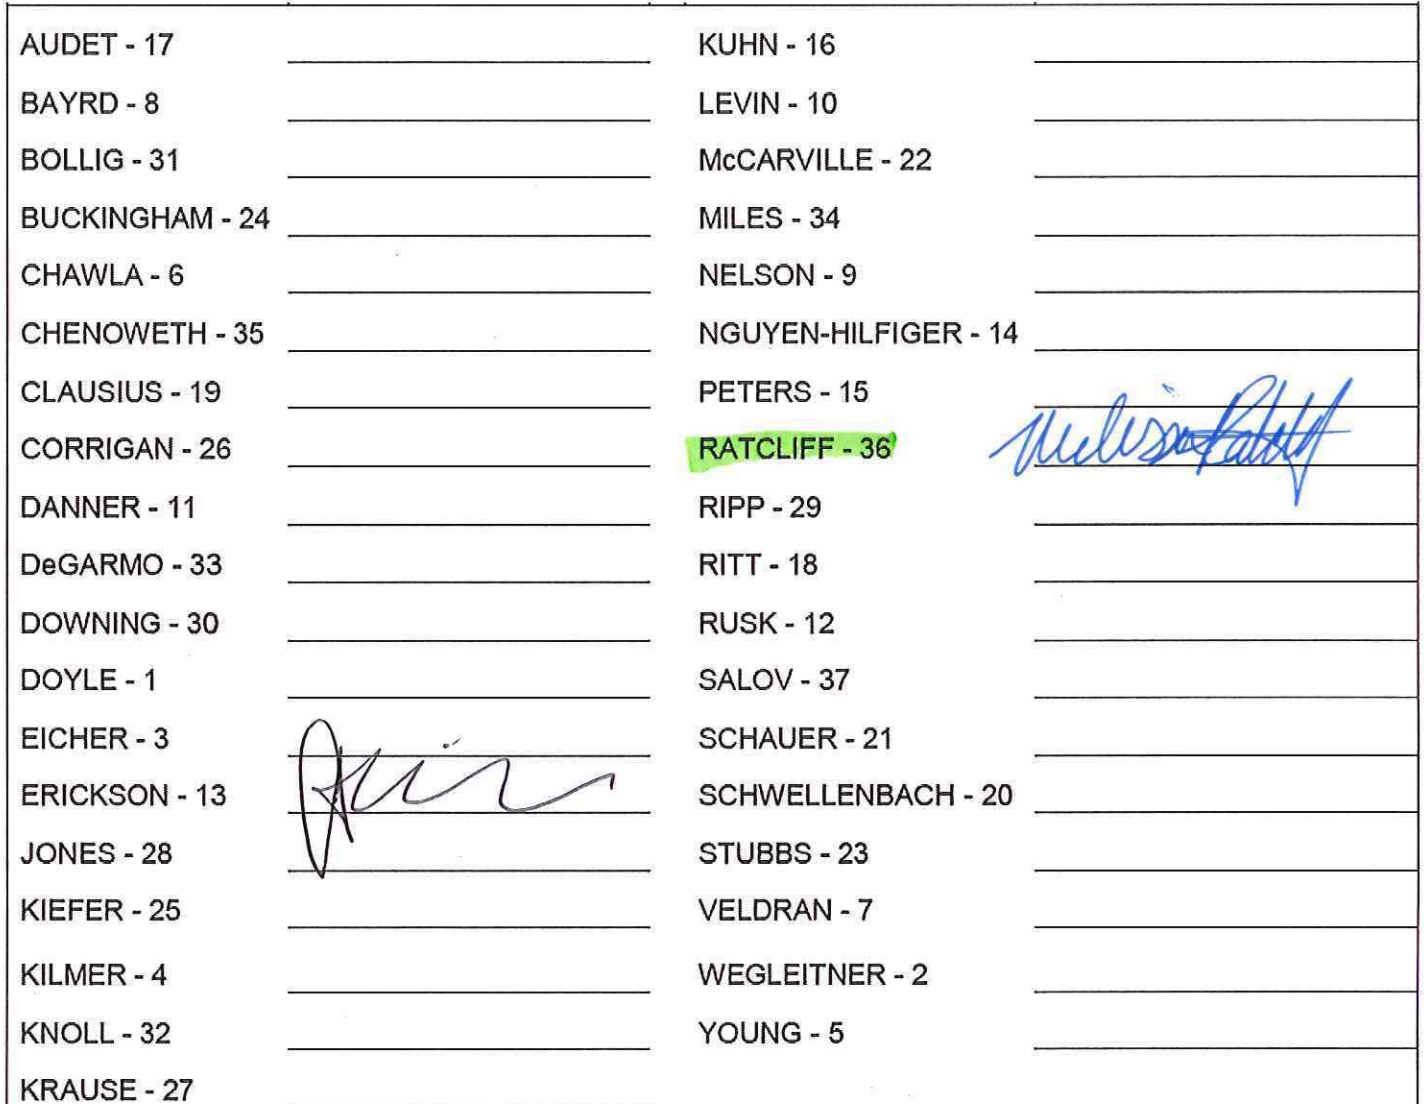 AUDET - 17
BAYRD - 8
BOLLIG - 31
BUCKINGHAM - 24
CHAWLA - 6
CHENOWETH - 35
CLAUSIUS - 19
CORRIGAN - 26
DANNER - 11
DeGARMO - 33
DOWNING - 30
DOYLE - 1
EICHER - 3
ERICKSON - 13
JONES - 28
KIEFER - 25
KILMER - 4
KNOLL - 32
KRAUSE - 27
KUHN - 16
LEVIN - 10
McCARVILLE - 22
MILES - 34
NELSON - 9
NGUYEN-HILFIGER - 14
PETERS - 15
RATCLIFF - 36
Melissa Ratcliff
RIPP - 29
RITT - 18
RUSK - 12
SALOV - 37
SCHAUER - 21
SCHWELLENBACH - 20
STUBBS - 23
VELDRAN - 7
WEGLEITNER - 2
YOUNG - 5